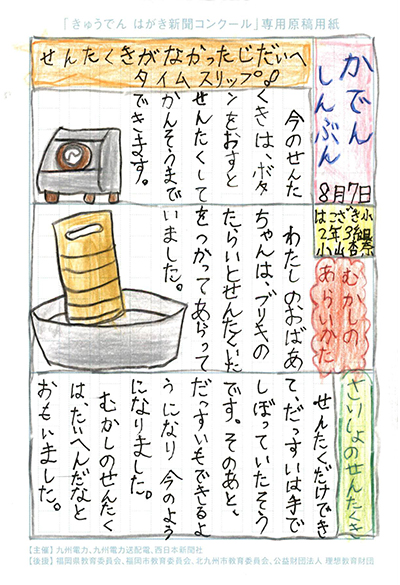 「きゅうでん はがき新聞コンクール」専用原稿用紙
かでん
しんぶん
8月7日
はこざき小
2年3組
小山杏奈
せんたくきがなかったじだいへ
タイムスリップ!!
今のせんた
くきは、ボタ
ンをおすと
せんたくして
かんそうまで
できます。
むかしの
あらいかた
わたしのおばあ
ちゃんは、ブリキの
たらいとせんたくいた
をつかってあらって
いました。
さいしょのせんたくき
せんたくだけでき
て、だっすいは手で
しぼっていたそう
です。そのあと、
だっすいもできるよ
うになり 今のよう
になりました。
むかしのせんたく
は、たいへんだなと
おもいました。
【主催】九州電力、九州電力送配電、西日本新聞社
【後援】福岡県教育委員会、福岡市教育委員会、北九州市教育委員会、公益財団法人 理想教育財団